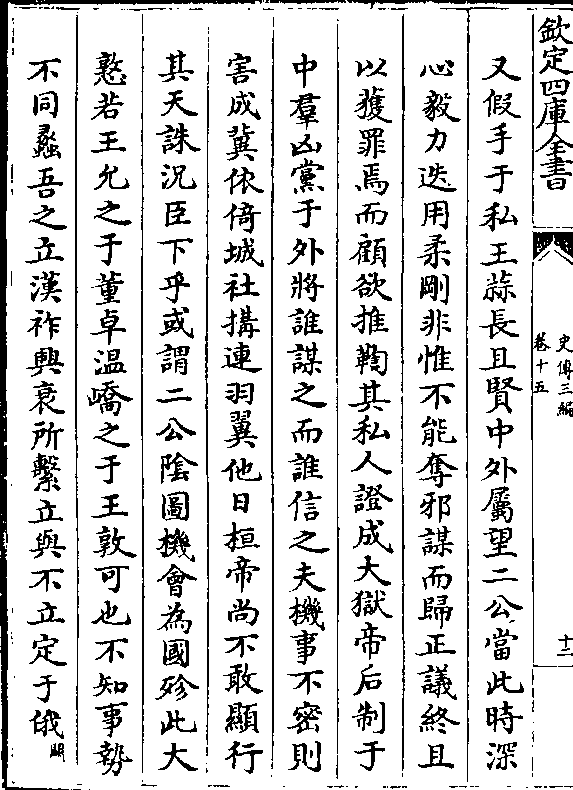 欽定四庫全書
史傳三編
卷十五
十二
又假手于私王蒜長且賢中外屬望二公當此時深
心毅力迭用柔剛非惟不能奪邪謀而歸正議終且
以獲罪焉而顧欲推鞫其私人證成大獄帝后制于
中羣凶黨于外將誰謀之而誰信之夫機事不密則
害成冀依倚城社搆連羽翼他日桓帝尚不敢顯行
其天誅況臣下乎或謂二公隂圖機會為國殄此大
憝若王允之于董卓温嶠之于王敦可也不知事勢
不同蠡吾之立漢祚興衰所繫立與不立定于俄